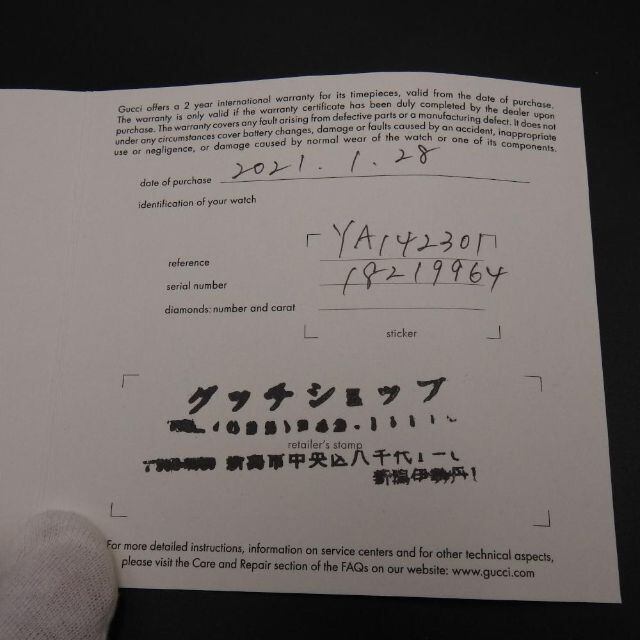 Gucci offers a 2 year international warranty for its timepieces, valid from the date of purchase.
The warranty is only valid if the warranty certificate has been duly completed by the dealer upon
purchase. The warranty covers any fault arising from defective parts or a manufacturing defect. It does not
under any circumstances cover battery changes, damage or faults caused by an accident, inappropriate
use or negligence, or damage caused by normal wear of the watch or one of its components.
date of purchase 2021.1.28
identification of your watch
reference YA142301
serial number 18219964
diamonds: number and carat
sticker
グッチショップ
retailer's stamp
新潟市中央区八千代1-
新潟伊勢丹1
For more detailed instructions, information on service centers and for other technical aspects,
please visit the Care and Repair section of the FAQs on our website: www.gucci.com